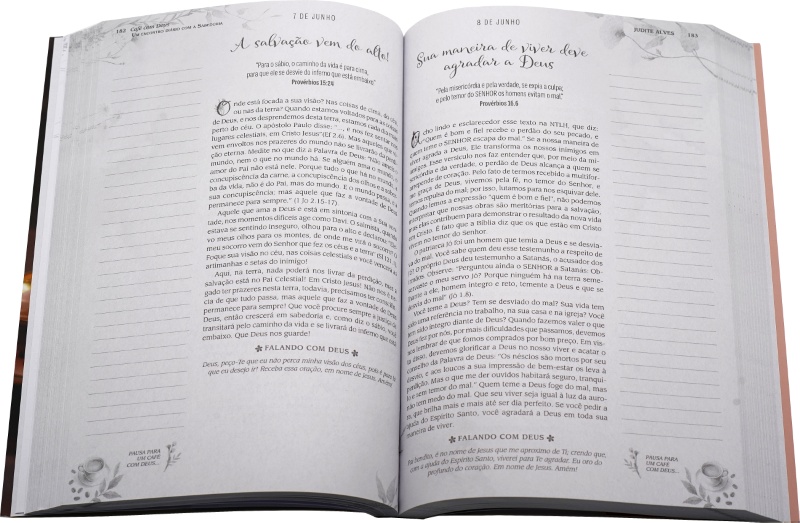 182 Café com Deus
Um encontro diário com a Sabedoria
7 DE JUNHO
A salvação vem do alto!
"Para o sábio, o caminho da vida é para cima,
para que ele se desvie do inferno que está embaixo."
Provérbios 15:24
Onde está focada a sua visão? Nas coisas de cima, do céu,
ou nas da terra? Quando estamos voltados para as coisas
de Deus, e nos desprendemos desta terra, estamos cada dia mais
perto do céu. O apóstolo Paulo disse: "... e nos fez sentar nos
lugares celestiais, em Cristo Jesus" (Ef 2.6). Mas aqueles que
vem envoltos nos prazeres do mundo não se livrarão da perdi-
ção eterna. Medite no que diz a Palavra de Deus: "Não ameis o
mundo, nem o que no mundo há. Se alguém ama o mundo, o
amor do Pai não está nele. Porque tudo o que há no mundo, a
concupiscência da carne, a concupiscência dos olhos e a sober-
ba da vida, não é do Pai, mas do mundo. E o mundo passa, e a
sua concupiscência; mas aquele que faz a vontade de Deus
permanece para sempre." (1 Jo 2.15-17).
Aquele que ama a Deus é está em sintonia com a Sua von-
tade, nos momentos difíceis age como Davi. O salmista, quando
estava se sentindo inseguro, olhou para o alto e declarou: "Ele-
vo meus olhos para os montes, de onde me virá o socorro? O
meu socorro vem do Senhor que fez os céus e a terra" (Sl 121.1).
Foque sua visão no céu, nas coisas celestiais e você vencerá as
artimanhas e setas do inimigo!
Aqui, na terra, nada poderá nos livrar da perdição, mas a
salvação está no Pai Celestial! Em Cristo Jesus! Não nos é ne-
gado ter prazeres nesta terra, todavia, precisamos ter consciên-
cia de que tudo passa, mas aquele que faz a vontade de Deus
permanece para sempre! Que você procure sempre a justiça de
Deus, então crescerá em sabedoria e, como diz o sábio, você
transitará pelo caminho da vida e se livrará do inferno que está
embaixo. Que Deus nos guarde!
FALANDO COM DEUS
Deus, peço-Te que eu não perca minha visão dos céus, pois é para lá
que eu desejo ir! Receba essa oração, em nome de Jesus. Amém!
PAUSA PARA
UM CAFÉ
COM DEUS...
8 DE JUNHO
JUDITE ALVES 183
Sua maneira de viver deve
agradar a Deus
"Pela misericórdia e pela verdade, se expia a culpa;
e pelo temor do SENHOR os homens evitam o mal."
Provérbios 16.6
Acho lindo e esclarecedor esse texto na NTLH, que diz:
"Quem é bom e fiel recebe o perdão do seu pecado, e
quem teme o SENHOR escapa do mal." Se a nossa maneira de
viver agrada a Deus, Ele transforma os nossos inimigos em
amigos. Esse versículo nos faz entender que, por meio da mi-
sericórdia e da verdade, o perdão de Deus alcança a quem se
arrepende de coração. Pelo fato de termos recebido a multifor-
me graça de Deus, vivemos pela fé, no temor do Senhor, e
temos repulsa do mal; por isso, lutamos para nos esquivar dele.
Quando lemos a expressão "quem é bom e fiel", não podemos
interpretar que nossas obras são meritórias para a salvação,
mas elas contribuem para demonstrar o resultado da nova vida
em Cristo. É fato que a Bíblia diz que os que estão em Cristo
vivem no temor do Senhor.
O patriarca Jó foi um homem que temia a Deus e se desvia-
va do mal. Você sabe quem deu esse testemunho a respeito de
Jó? O próprio Deus deu testemunho a Satanás, o acusador dos
irmãos. Observe: "Perguntou ainda o SENHOR a Satanás: Ob-
servaste o meu servo Jó? Porque ninguém há na terra seme-
lhante a ele, homem íntegro e reto, temente a Deus e que se
desvia do mal" (Jó 1.8).
Você teme a Deus? Tem se desviado do mal? Sua vida tem
sido uma referência no trabalho, na sua casa e na igreja? Você
tem saído íntegro diante de Deus? Quando fazemos valer o que
Deus fez por nós, por mais dificuldades que passamos, devemos
nos lembrar de que fomos comprados por bom preço. Em vis-
ta disso, devemos glorificar a Deus no nosso viver e acatar o
conselho da Palavra de Deus: "Os néscios são mortos por seu
desvio, e aos loucos a sua impressão de bem-estar os leva à
perdição. Mas o que me der ouvidos habitará seguro, tranqui-
lo e sem temor do mal." Quem teme a Deus foge do mal, mas
não tem medo do mal. Que seu viver seja igual à luz da auro-
ra, que brilha mais e mais até ser dia perfeito. Se você pedir a
ajuda do Espírito Santo, você agradará a Deus em toda sua
maneira de viver.
FALANDO COM DEUS
Pai bendito, é no nome de Jesus que me aproximo de Ti, crendo que,
com a ajuda do Espírito Santo, viverei para Te agradar. Eu oro do
profundo do coração. Em nome de Jesus. Amém!
PAUSA PARA
UM CAFÉ
COM DEUS...